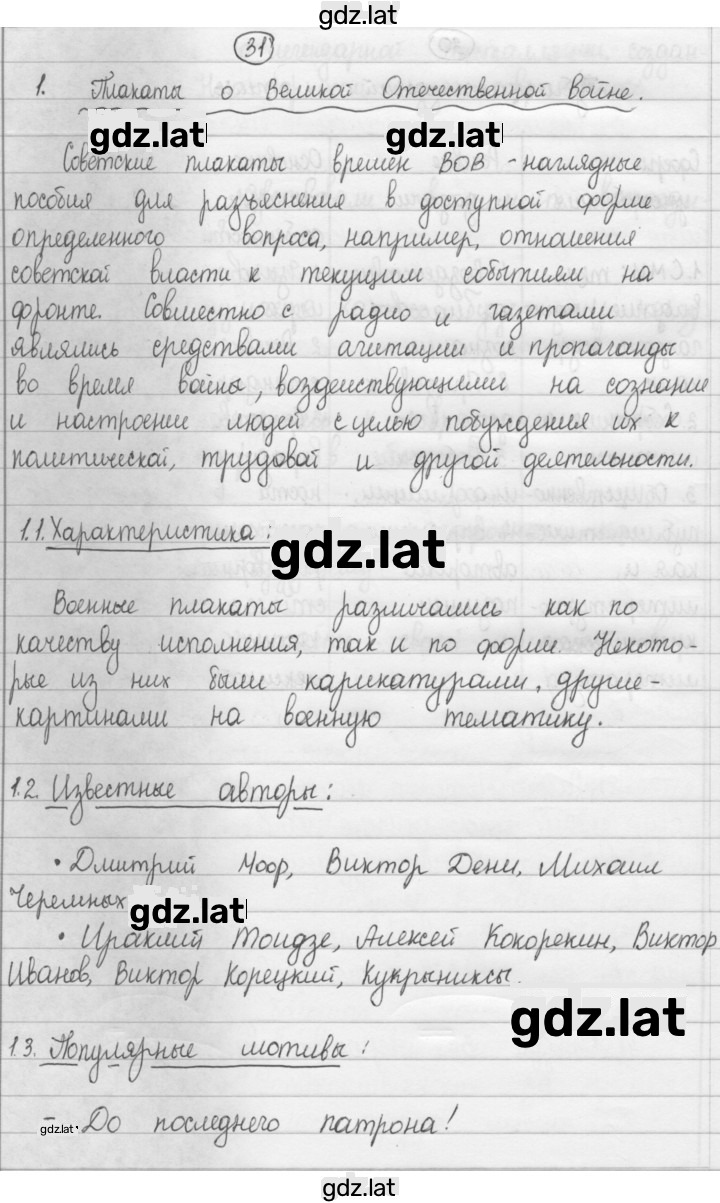 gdz.lat
31
1. Плакаты о Великой Отечественной войне.
gdz.lat gdz.lat
Советские плакаты времён ВОВ - наглядные
пособия для разъяснения в доступной форме
определенного вопроса, например, отношения
советской власти к текущим событиям на
фронте. Совместно с радио и газетами
являлись средствами агитации и пропаганды
во время войны, воздействующими на сознание
и настроении людей с целью побуждения их к
политической, трудовой и другой деятельности.
1.1. Характеристика:
gdz.lat
Военные плакаты различались как по
качеству исполнения, так и по форме. Некото-
рые из них были карикатурами, другие -
картинами на военную тематику.
1.2. Известные авторы:
• Дмитрий Моор, Виктор Дени, Михаил
Черемных
gdz.lat
• Ираклий Тоидзе, Алексей Кокорекин, Виктор
Иванов, Виктор Корецкий, Кукрыниксы.
gdz.lat
1.3. Популярные мотивы:
gdz.lat
- До последнего патрона!
gdz.lat